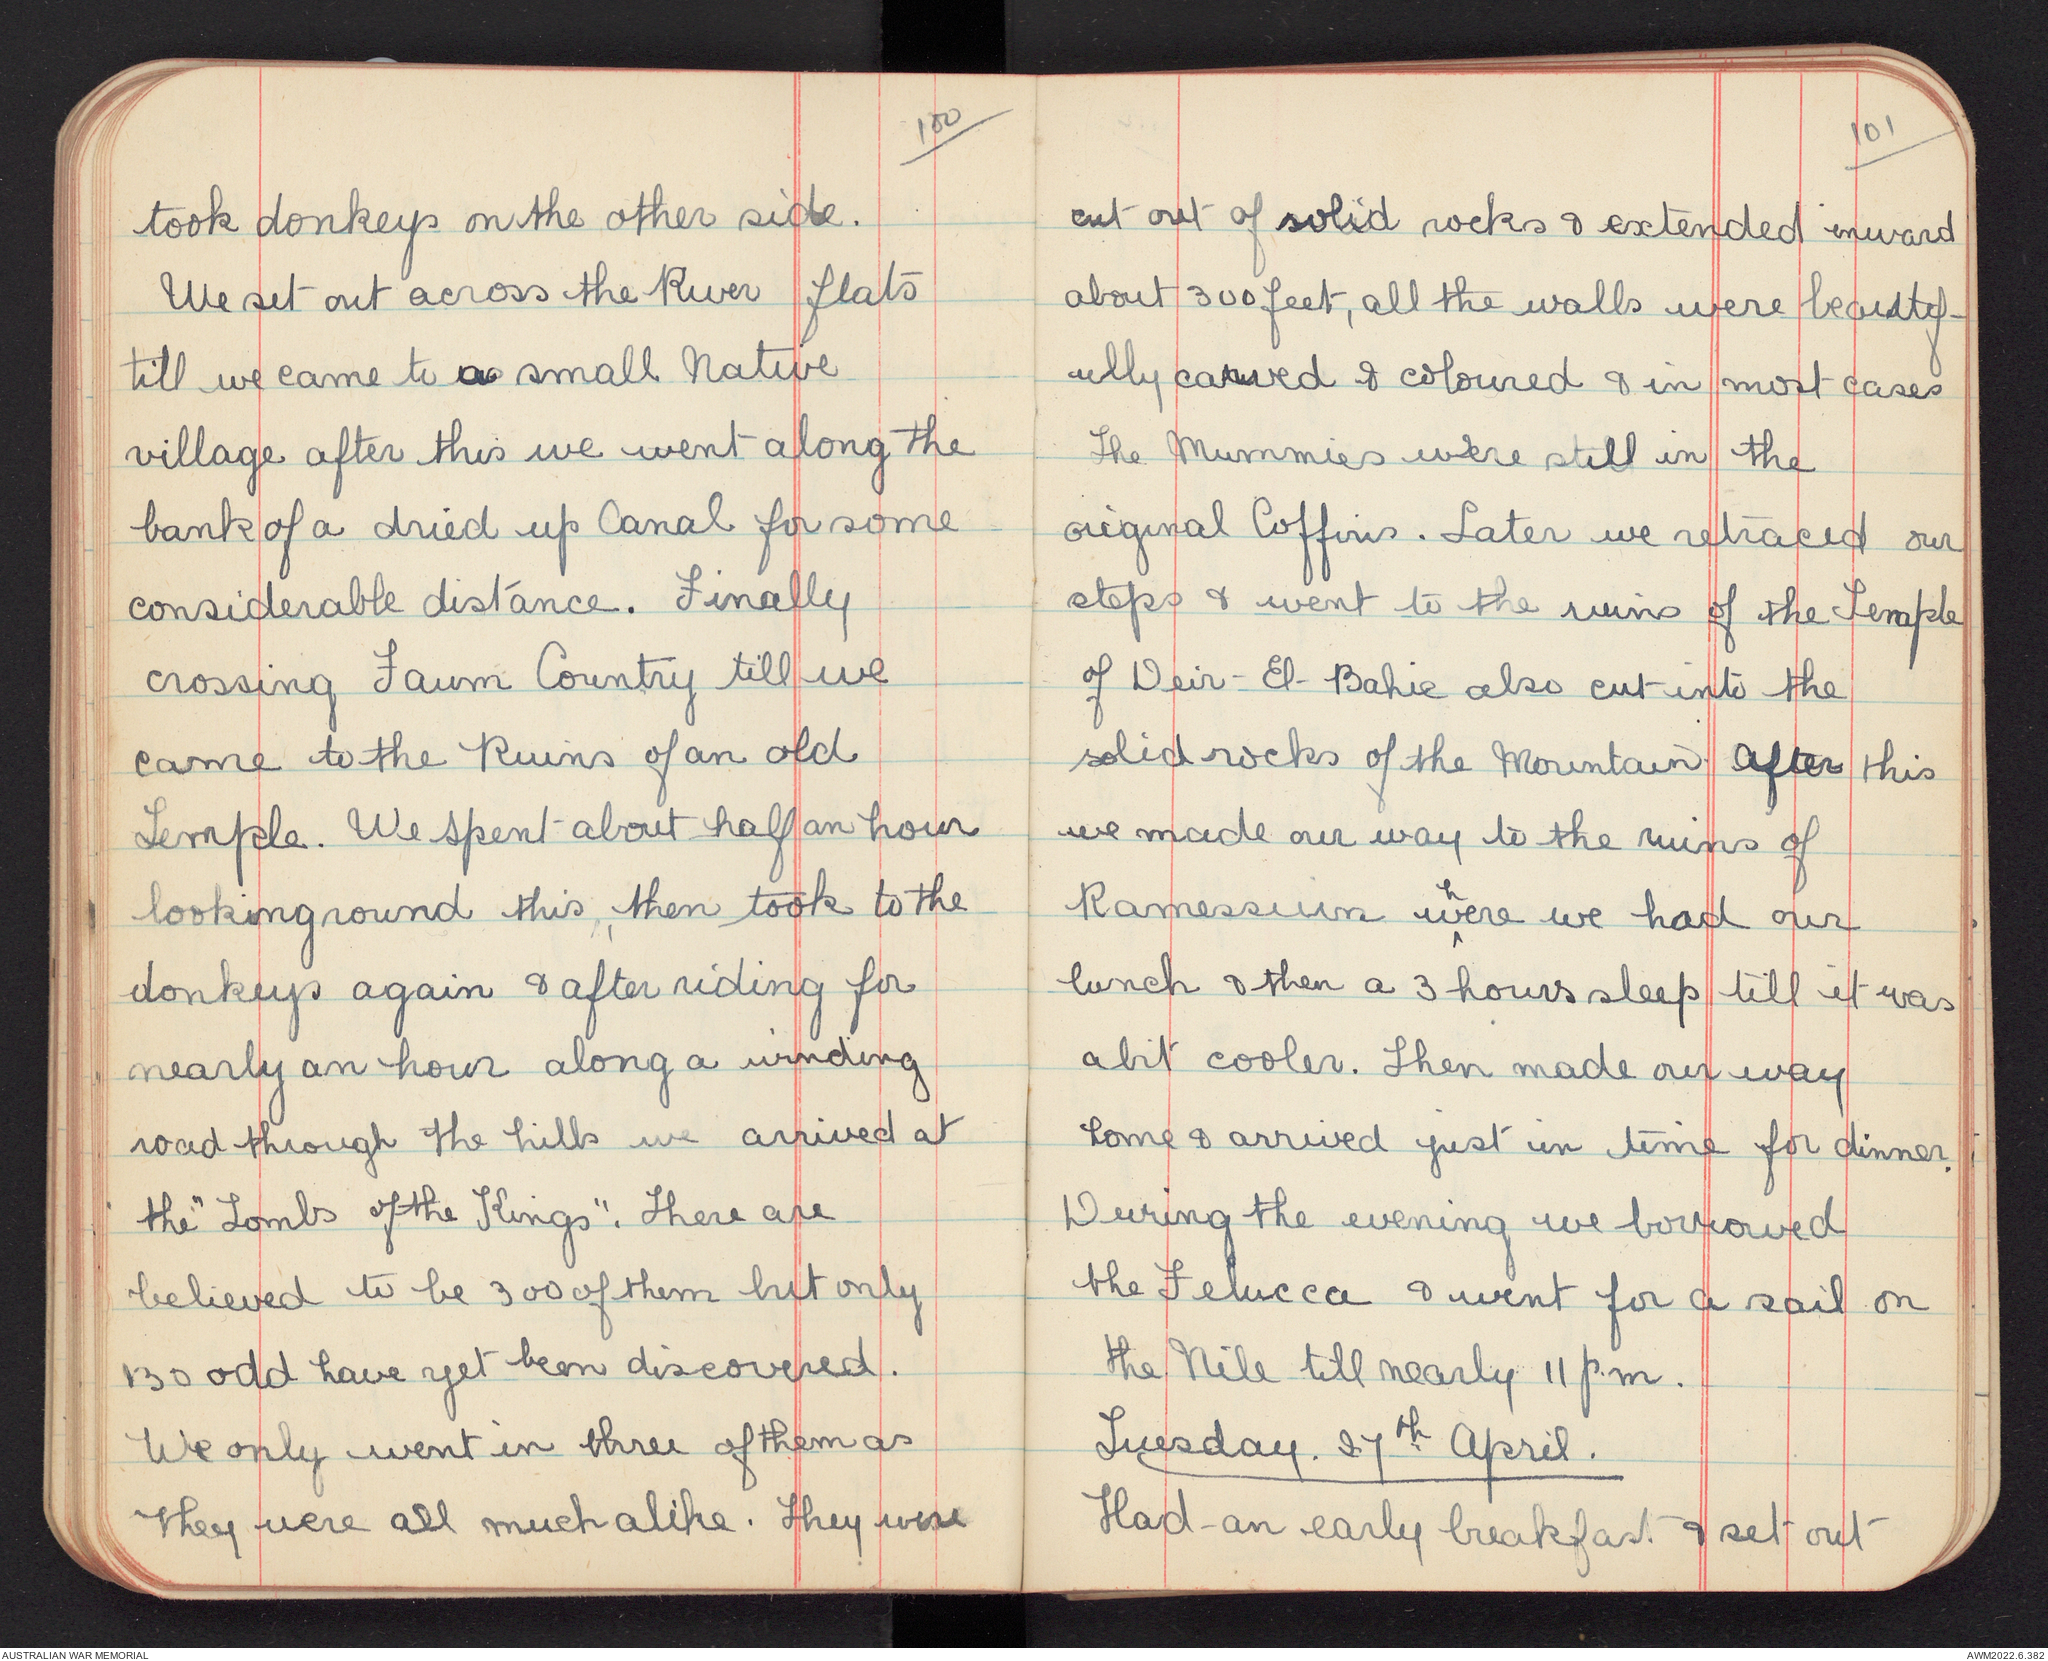 100
took donkeys on the other side.
We set out across the River flats
till we came to a small Native
village after this we went along the
bank of a dried up Canal for some
considerable distance. Finally
crossing Faum Country till we
came to the Ruins of an old
Temple. We spent about half an hour
looking round this, then took to the
donkeys again & after riding for
nearly an hour along a winding
road through the hills we arrived at
the "Tombs of the Kings". There are
believed to be 300 of them but only
130 odd have yet been discovered.
We only went in three of them as
they were all much alike. They were
101
cut out of solid rocks & extended inward
about 300 feet, all the walls were beautif-
ully carved & coloured & in most cases
The Mummies were still in the
original Coffins. Later we retraced our
steps & went to the ruins of the Temple
of Deir-El-Bahie also cut into the
solid rocks of the Mountain. After this
we made our way to the ruins of
Ramessium where we had our
lunch & then a 3 hours sleep till it was
a bit cooler. Then made our way
home & arrived just in time for dinner.
During the evening we borrowed
the Felucca & went for a sail on
the Nile till nearly 11 p.m.
Tuesday. 27th April.
Had an early breakfast & set out
AUSTRALIAN WAR MEMORIAL
AWM2022.6.382